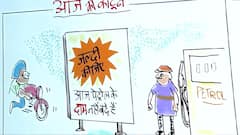 आज कार्टून
जल्दी
कीजिए
आज पेट्रोल के
दाम नहीं बढ़े हैं
PETROL